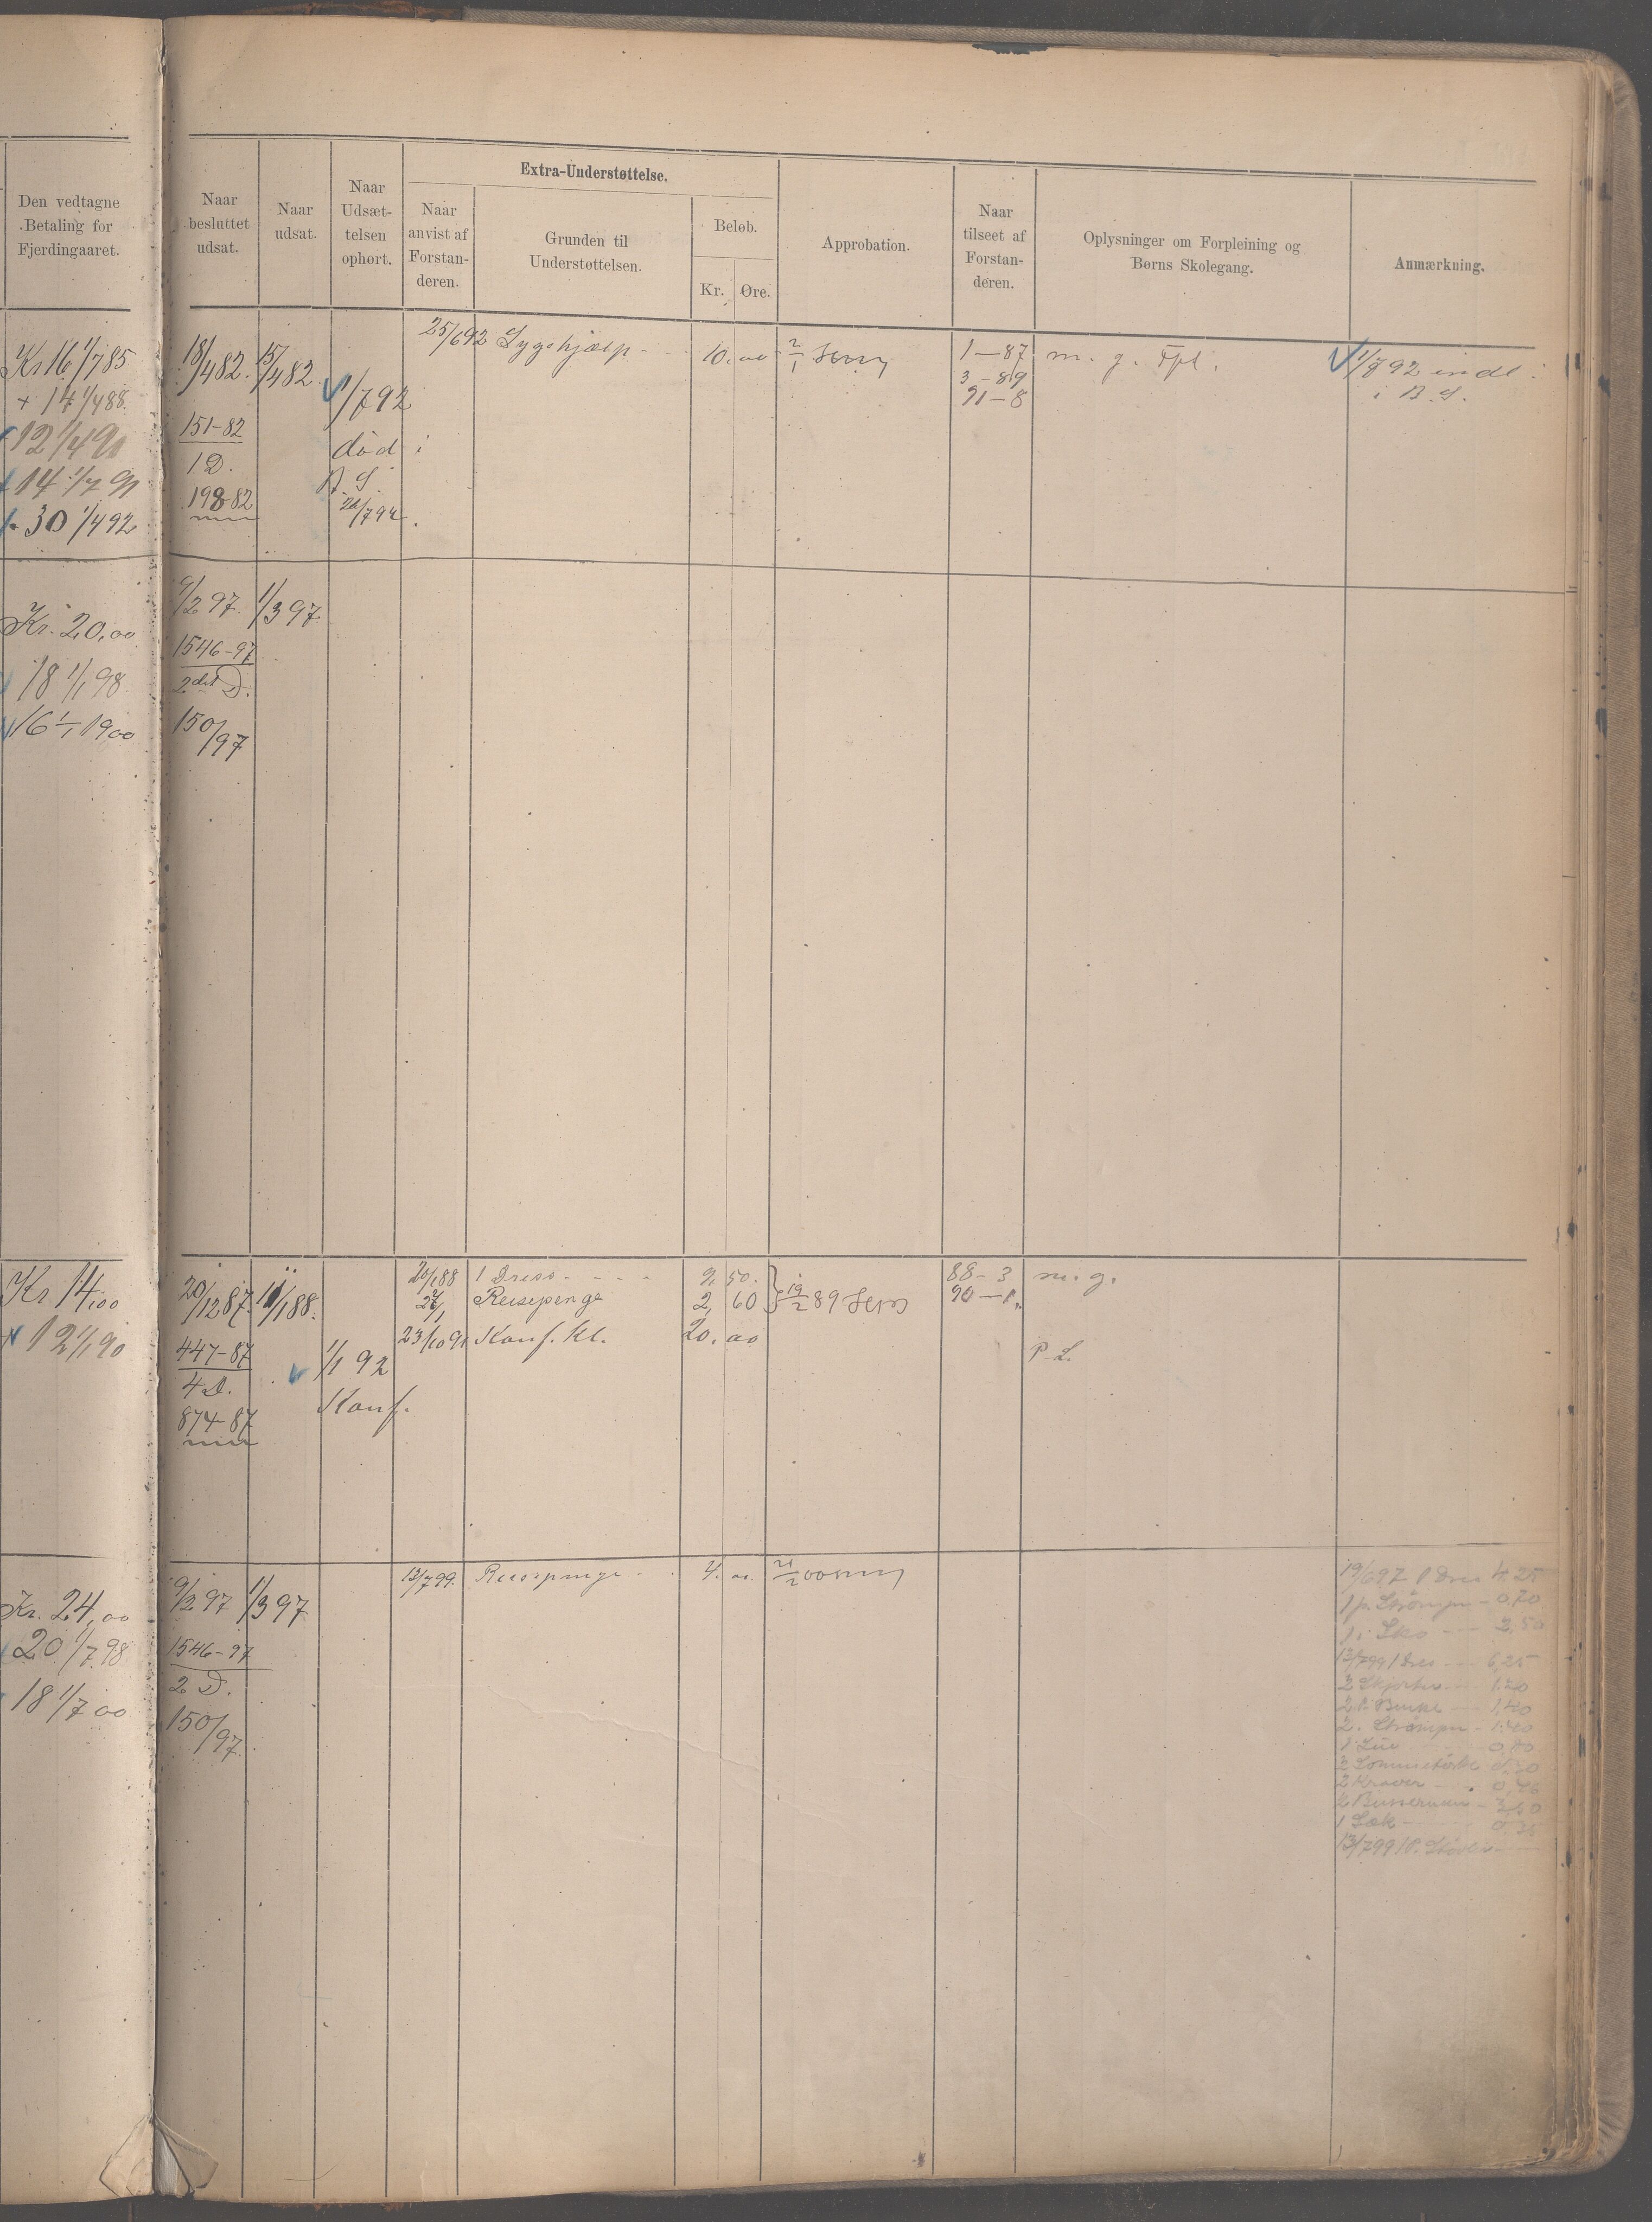 Den vedtagne
Betaling for
Fjerdingaaret.
Naar
besluttet
udsat.
Naar
udsat.
Naar
Udsæt-
telsen
ophørt.
Extra-Understøttelse.
Naar
anvist af
Forstan-
deren.
Grunden til
Understøttelsen.
Beløb.
Kr. Øre.
Approbation.
Naar
tilseet af
Forstan-
deren.
Oplysninger om Forpleining og
Børns Skolegang.
Anmærkning.
Kr 16 1/7 85
+ 14 1/4 88.
12 1/4 90
14 1/7 91
30 1/4 92
18/4 82.
151-82
1 D.
198-82
15/4 82.
1/7 92
død i
B. S.
25/6 92 Sygehjælp 10. 00
1-87
3-89
91-8
m. g. Fpl.
1/7 92 indl.
i B. S.
Kr. 20,00
18 1/1 98
16 1/1 1900
9/2 97.
1546-97
2det D.
150/97
1/3 97
Kr 14,00
12 1/1 90
20/12 87.
447-87
4 D.
874-87
1/1 88.
1/1 92
Konf.
20/1 88 1 Dress 9, 50.
Reisepenge 2, 60
23/10 91 Konf. kl. 20. 00
19/2 89
88-3
90-1
m. g.
P. L.
Kr. 24,00
20 1/7 98
18 1/7 00
9/2 97
1546-97
2 D.
150/97.
1/3 97
13/7 99. Reisepenge 4. 00
19/6 97 1 Dres 4.25
1 p. Strömper - 0,70
1 " Sko 3,50
13/7 99 1 Dres 6,25
2 Skjorter 1.20
2 p. Buxe 1,40
2 . Strömper - 1.40
1 Lue
2 Lommetörkl
2 Kraver
2 Busseruner
1 Sæk
13/7 99 1 P. Støvler